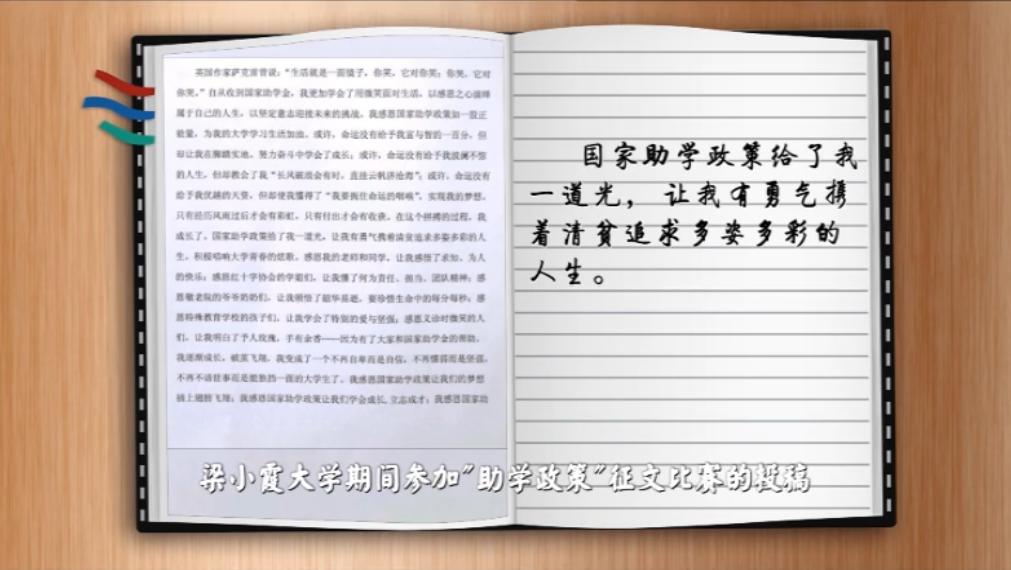 英国作家萨克雷曾说：“生活就是一面镜子，你笑，它对你笑；你哭，它对
你哭。”自从收到国家助学金，我更加学会了用微笑面对生活，以感恩之心演绎
属于自己的人生，以坚定意志迎接未来的挑战。我感恩国家助学政策如一股正
能量，为我的大学学习生活加油。或许，命运没有给予我富与智的一百分，但
却让我在脚踏实地、努力奋斗中学会了成长；或许，命运没有给予我波澜不惊
的人生，但却教会了我“长风破浪会有时，直挂云帆济沧海”；或许，命运没有
给予我优越的天资，但却使我懂得了“我要扼住命运的咽喉”，实现我的梦想。
只有经历风雨过后才会有彩虹，只有付出才会有收获。在这个拼搏的过程，我
成长了。国家助学政策给了我一道光，让我有勇气携着清贫追求多姿多彩的人
生，积极唱响大学青春的炫歌。感恩我的老师和同学，让我感悟了求知、为人
的快乐；感恩红十字协会的学姐们，让我懂了何为责任、担当、团队精神；感
恩敬老院的爷爷奶奶们，让我领悟了韶华易逝，要珍惜生命中的每分每秒；感
恩特殊教育学校的孩子们，让我学会了特别的爱与坚强；感恩义诊时微笑的人
们，让我明白了予人玫瑰，手有余香——因为有了大家和国家助学金的帮助，
我逐渐成长，破茧飞翔，我变成了一个不再自卑而是自信，不再懦弱而是坚强，
不再不谙世事而是能独挡一面的大学生了。我感恩国家助学政策让我们的梦想
插上翅膀飞翔；我感恩国家助学政策让我们学会成长,立志成才；我感恩国家助
国家助学政策给了我
一道光，让我有勇气携
着清贫追求多姿多彩的
人生。
梁小霞大学期间参加"助学政策"征文比赛的投稿